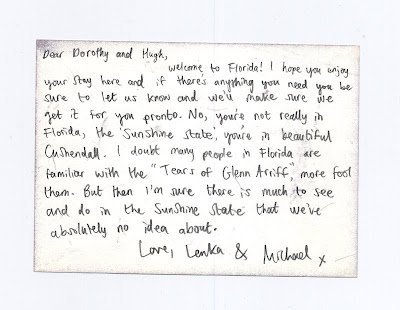 Dear Dorothy and Hugh,
Welcome to Florida! I hope you enjoy
your stay here and if there's anything you need you be
sure to let us know and we'll make sure we
get it for you pronto. No, you're not really in
Florida, the 'Sunshine State', you're in beautiful
Cushendall. I doubt many people in Florida are
familiar with the "Tears of Glenn Arriff", more fool
them. But then I'm sure there is much to see
and do in the Sunshine State that we've
absolutely no idea about.
Love, Lenka & Michael x